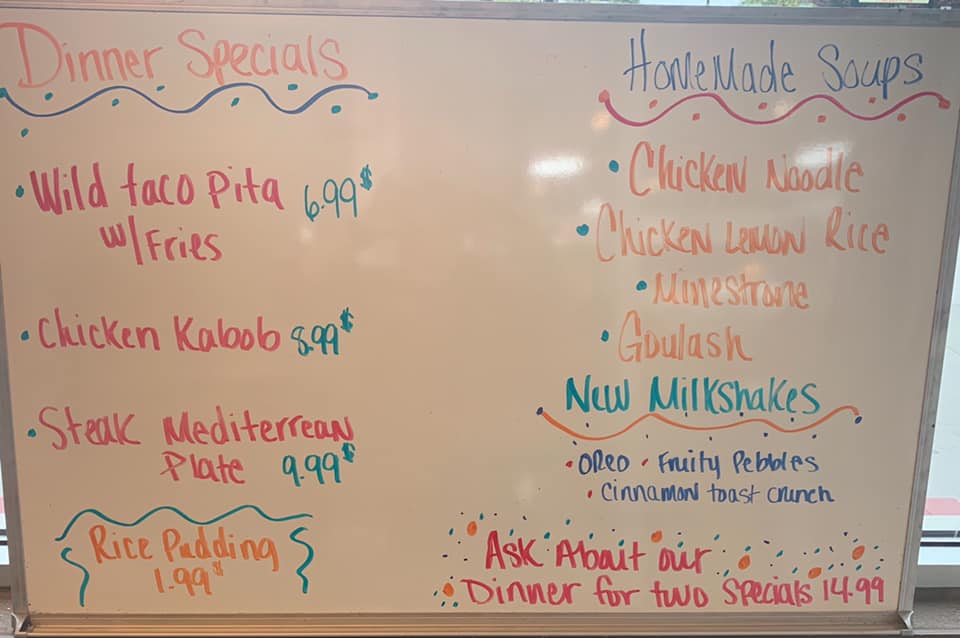 Dinner Specials
• Wild taco Pita 6.99$
w/Fries
• Chicken Kabob 8.99$
• Steak Mediterrean
Plate 9.99$
Rice Pudding
1.99$
HomeMade Soups
• Chicken Noodle
• Chicken Lemon Rice
• Minestrone
• Goulash
New Milkshakes
• OREO • Fruity Pebbles
• Cinnamon toast crunch
Ask Abait our
Dinner for two Specials 14.99